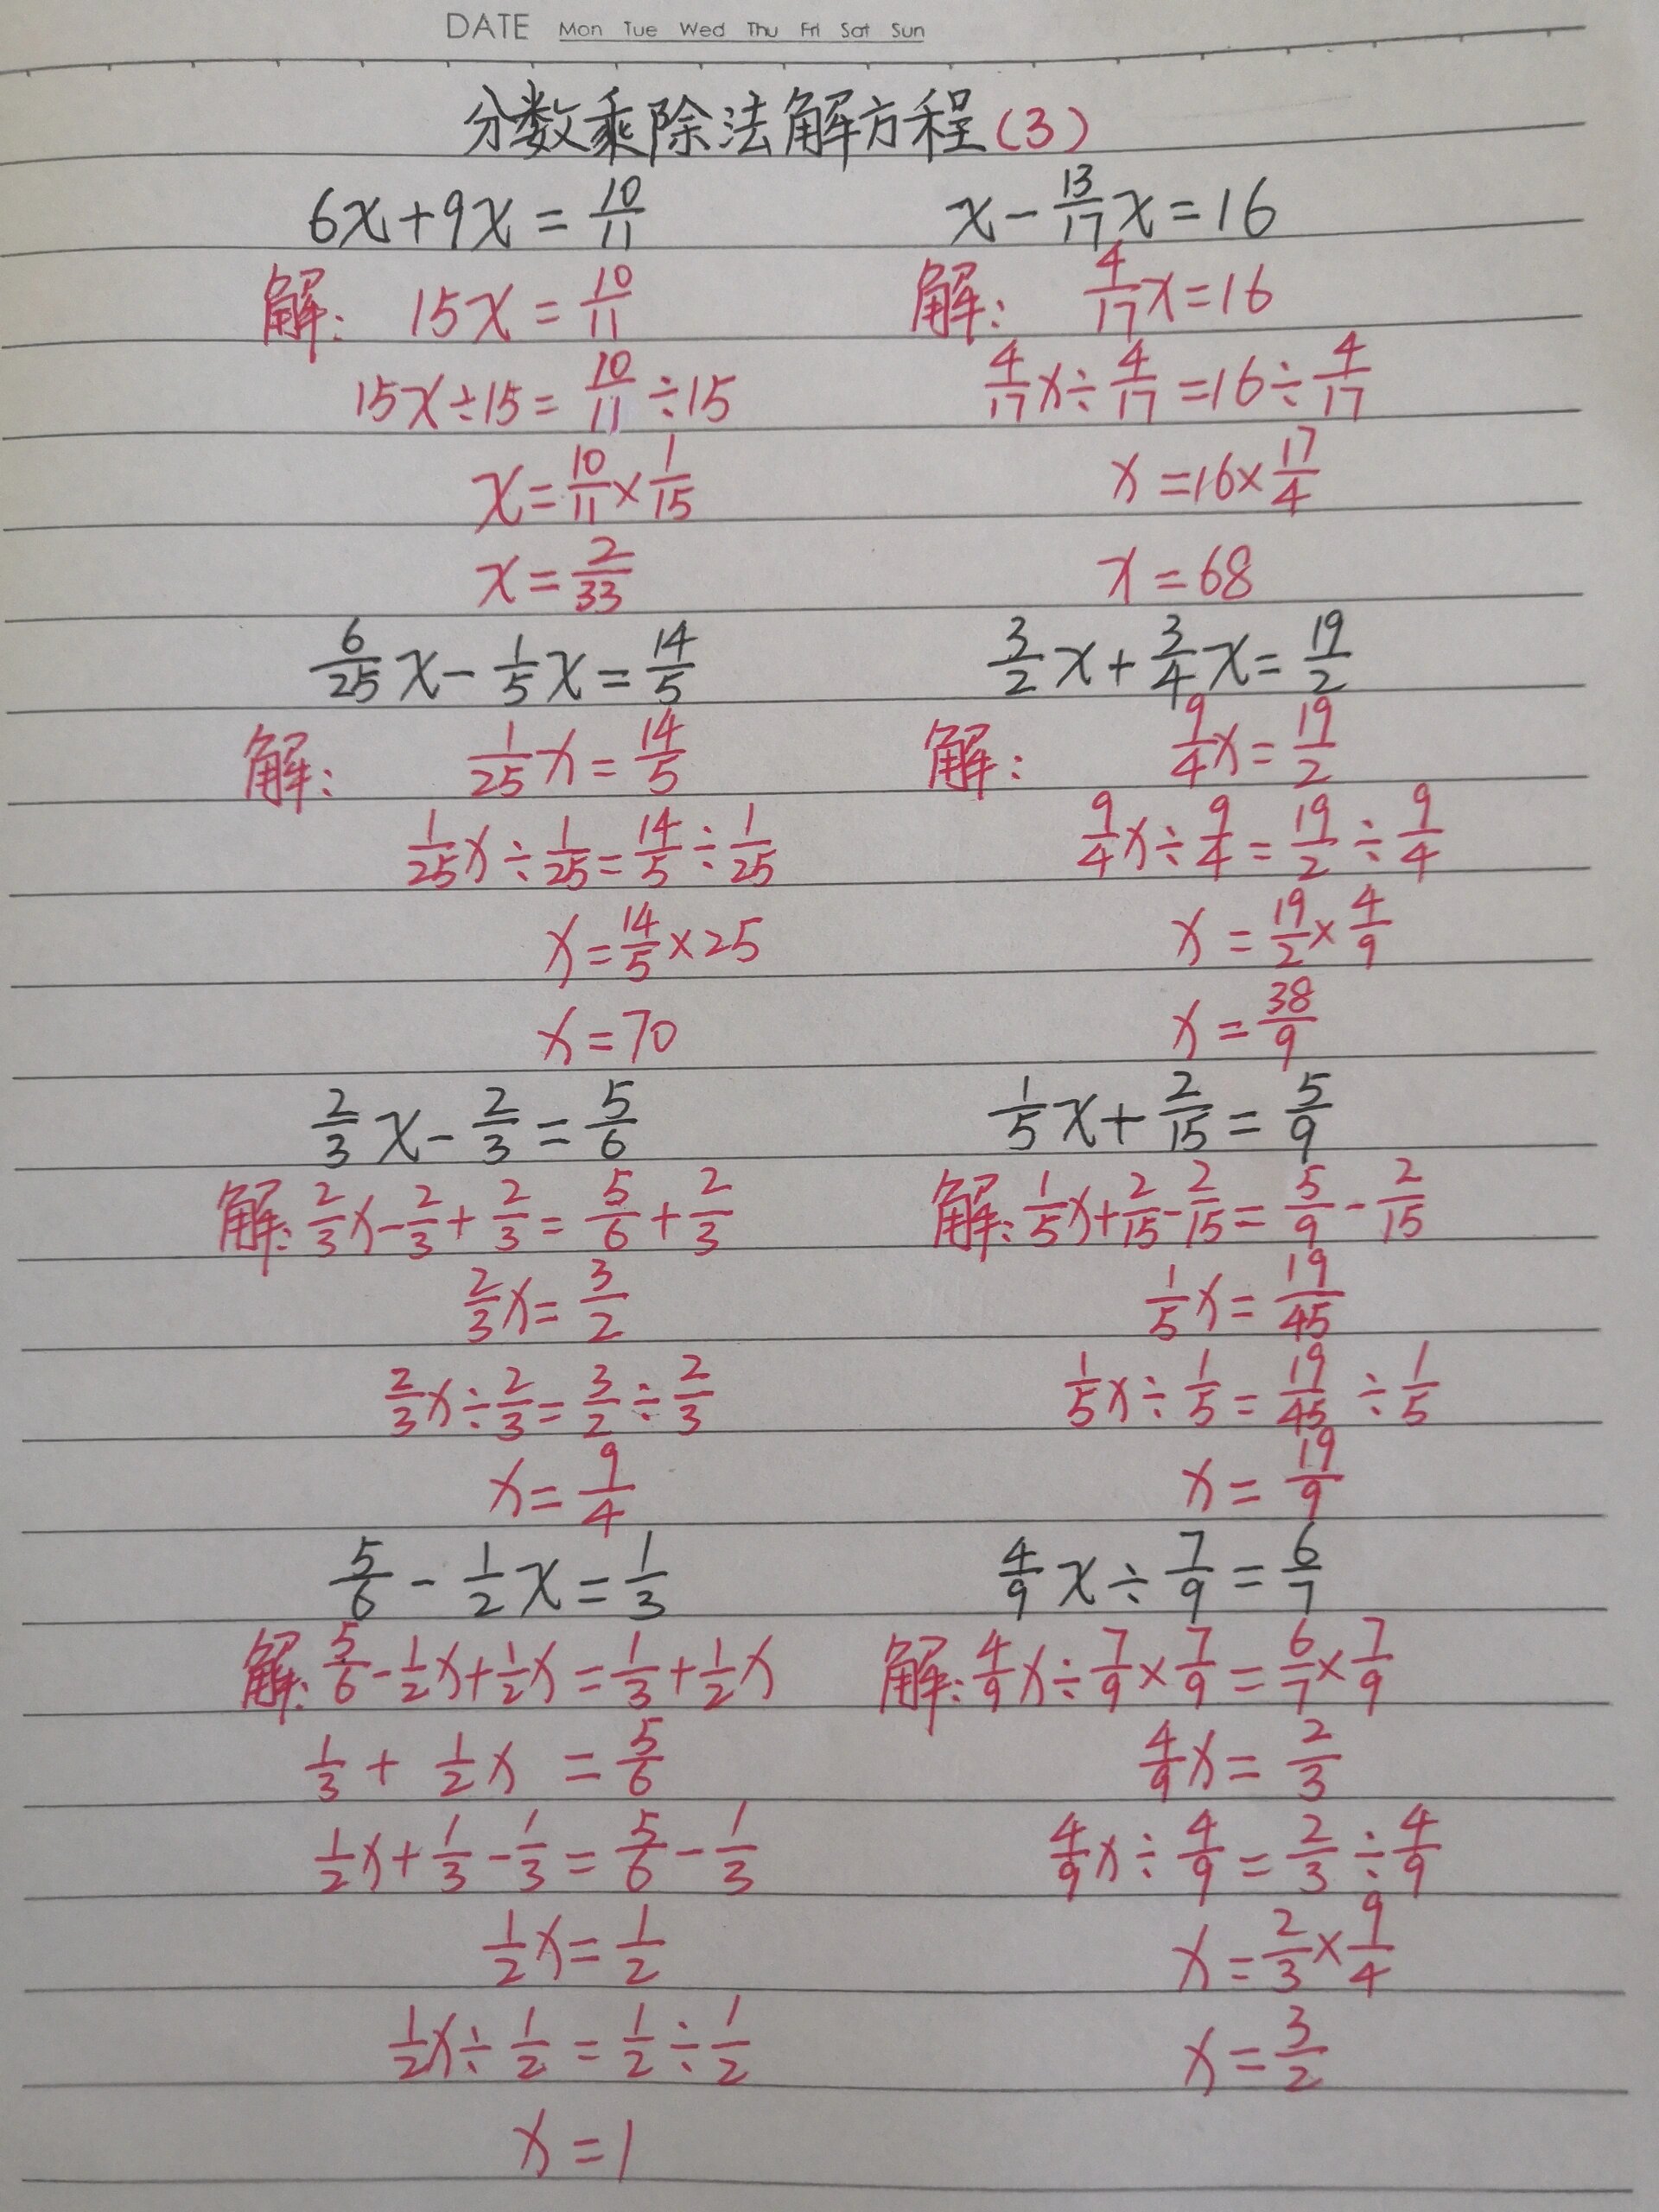 DATE Mon Tue Wed Thu Fri Sat Sun
分数乘除法解方程(3)
6x+9x=10/11
解: 15x=10/11
15x÷15=10/11÷15
x=10/11×1/15
x=2/33
x-13/17x=16
解: 4/17x=16
4/17x÷4/17=16÷4/17
x=16×17/4
x=68
6/25x-1/5x=14/5
解: 1/25x=14/5
1/25x÷1/25=14/5÷1/25
x=14/5×25
x=70
3/2x+3/4x=19/2
解: 9/4x=19/2
9/4x÷9/4=19/2÷9/4
x=19/2×4/9
x=38/9
2/3x-2/3=5/6
解: 2/3x-2/3+2/3=5/6+2/3
2/3x=3/2
2/3x÷2/3=3/2÷2/3
x=9/4
1/5x+2/15=5/9
解: 1/5x+2/15-2/15=5/9-2/15
1/5x=19/45
1/5x÷1/5=19/45÷1/5
x=19/9
5/6-1/2x=1/3
解: 5/6-1/2x+1/2x=1/3+1/2x
1/3+1/2x=5/6
1/2x+1/3-1/3=5/6-1/3
1/2x=1/2
1/2x÷1/2=1/2÷1/2
x=1
4/9x÷7/9=6/7
解: 4/9x÷7/9×7/9=6/7×7/9
4/9x=2/3
4/9x÷4/9=2/3÷4/9
x=2/3×9/4
x=3/2